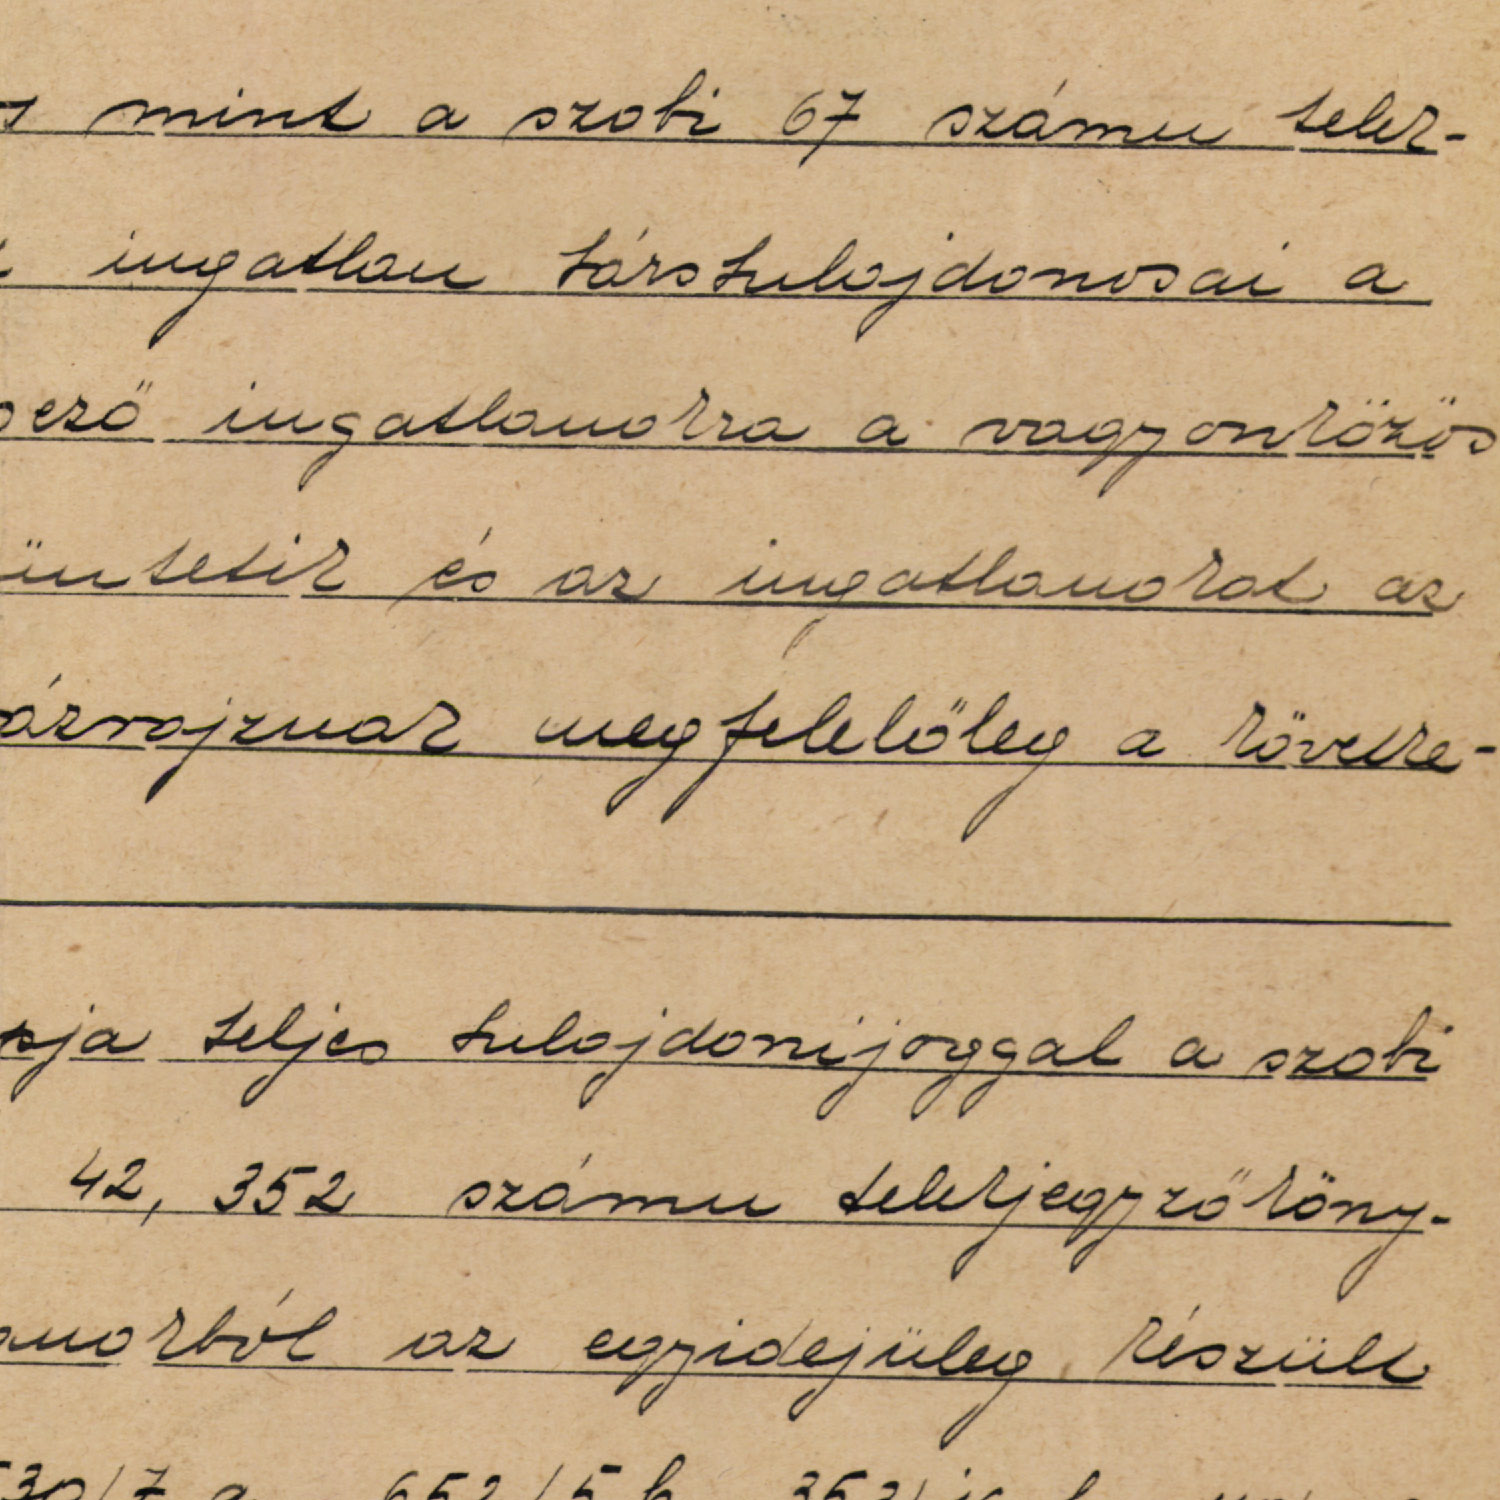 s mint a szobi 67 számu telek-
ingatlan társtulajdonosai a
pező ingatlanokra a vagyonközös
üntetik és az ingatlanokat az
ázrajznak megfelelőleg a követke-
pja teljes tulajdonijoggal a szobi
42, 352 számu telekjegyzőköny-
anokból az egyidejüleg készült
530/7 a 652/5 b 352/